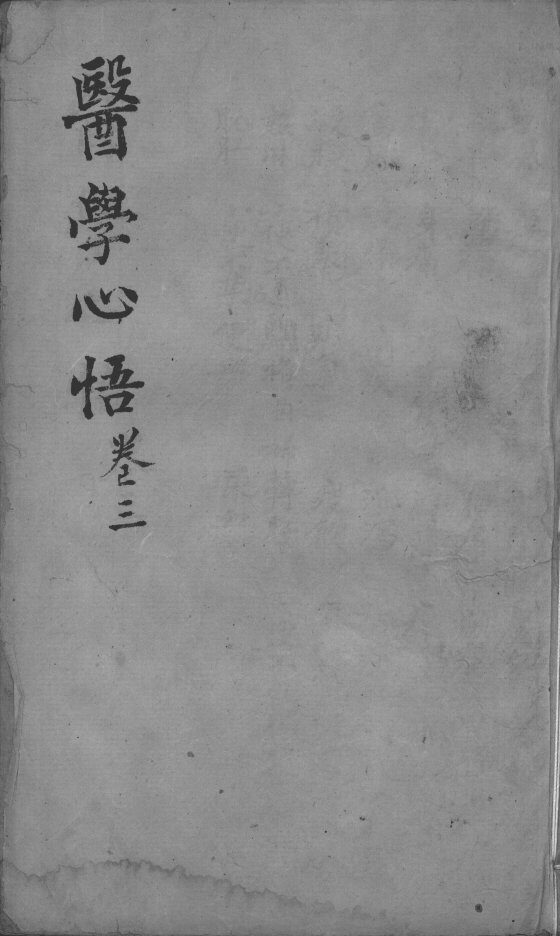 醫學心悟
卷三